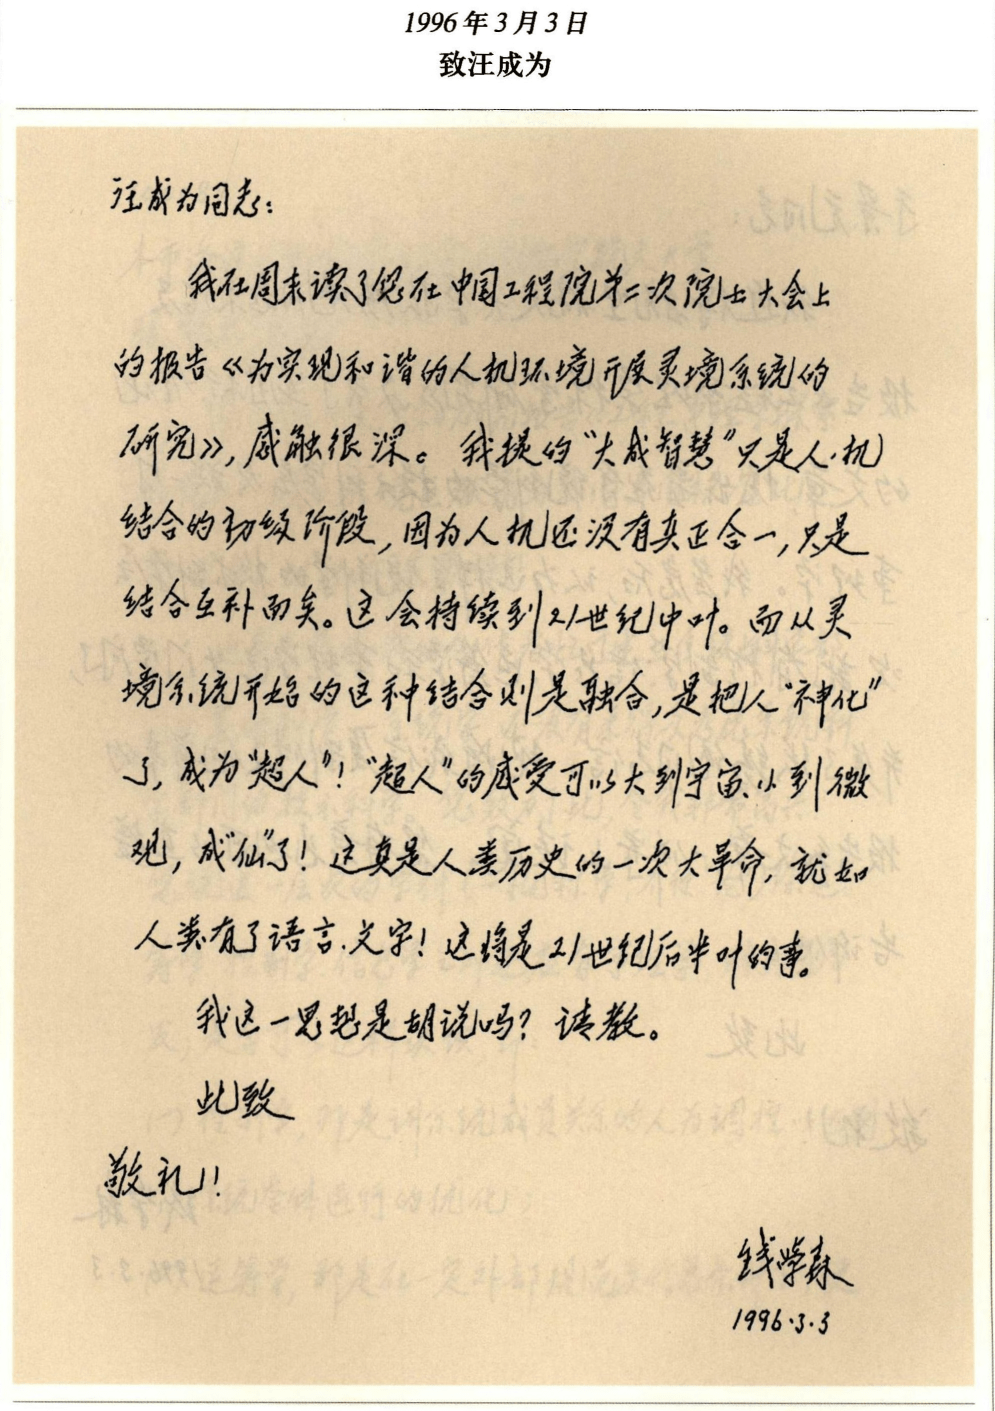 1996年3月3日
致汪成为
汪成为同志：
我在周末读了您在中国工程院第二次院士大会上
的报告《为实现和谐的人机环境开展灵境系统的
研究》，感触很深。我提的“大成智慧”只是人·机
结合的初级阶段，因为人机还没有真正合一，只是
结合互补而矣。这会持续到21世纪中叶。而从灵
境系统开始的这种结合则是融合，是把人“神化”
了，成为“超人”！“超人”的感受可以大到宇宙、小到微
观，成“仙”了！这真是人类历史的一次大革命，就如
人类有了语言、文字！这将是21世纪后半叶的事。
我这一思想是胡说吗？请教。
此致
敬礼！
钱学森
1996.3.3